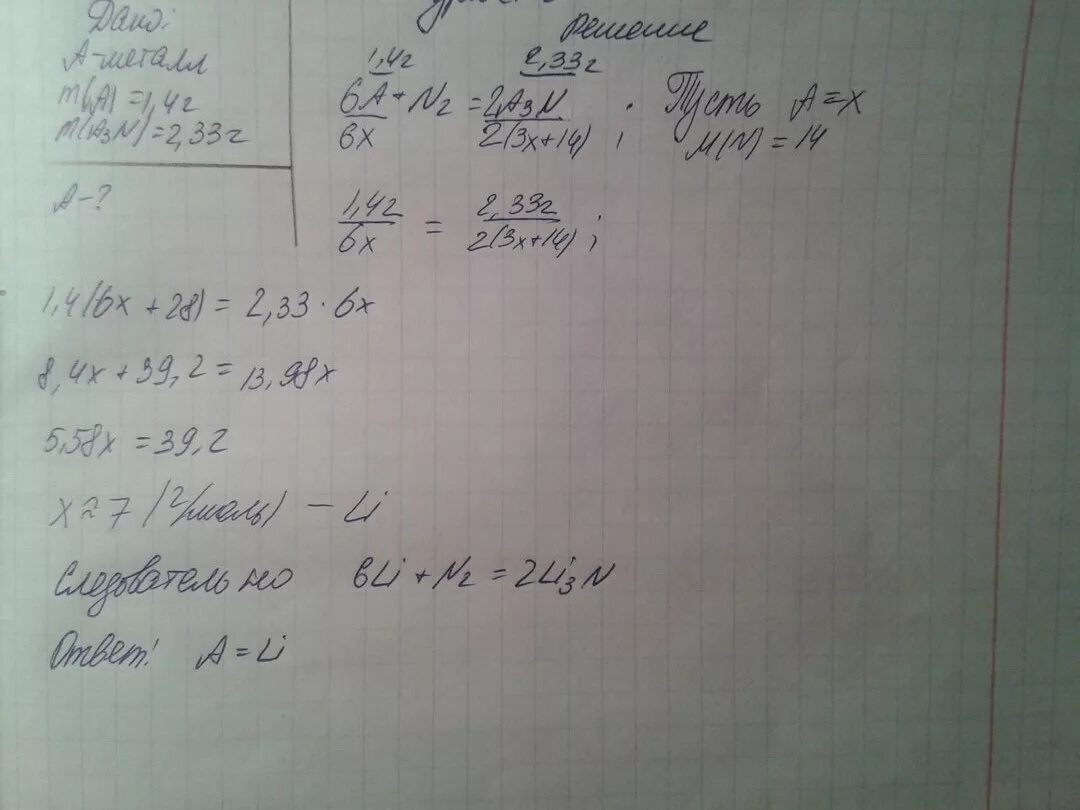 Дано:
A-металл
m(A) = 1,4г
m(A₃N) = 2,33г
A-?
Решение
1,4г 2,33г
6A + N₂ = 2A₃N . Пусть A = x
6x 2(3x+14) ; M(N) = 14
1,4г/6x = 2,33г/2(3x+14) ;
1,4(6x + 28) = 2,33 · 6x
8,4x + 39,2 = 13,98x
5,58x = 39,2
x ≈ 7 (г/моль) – Li
Следовательно 6Li + N₂ = 2Li₃N
Ответ: A = Li